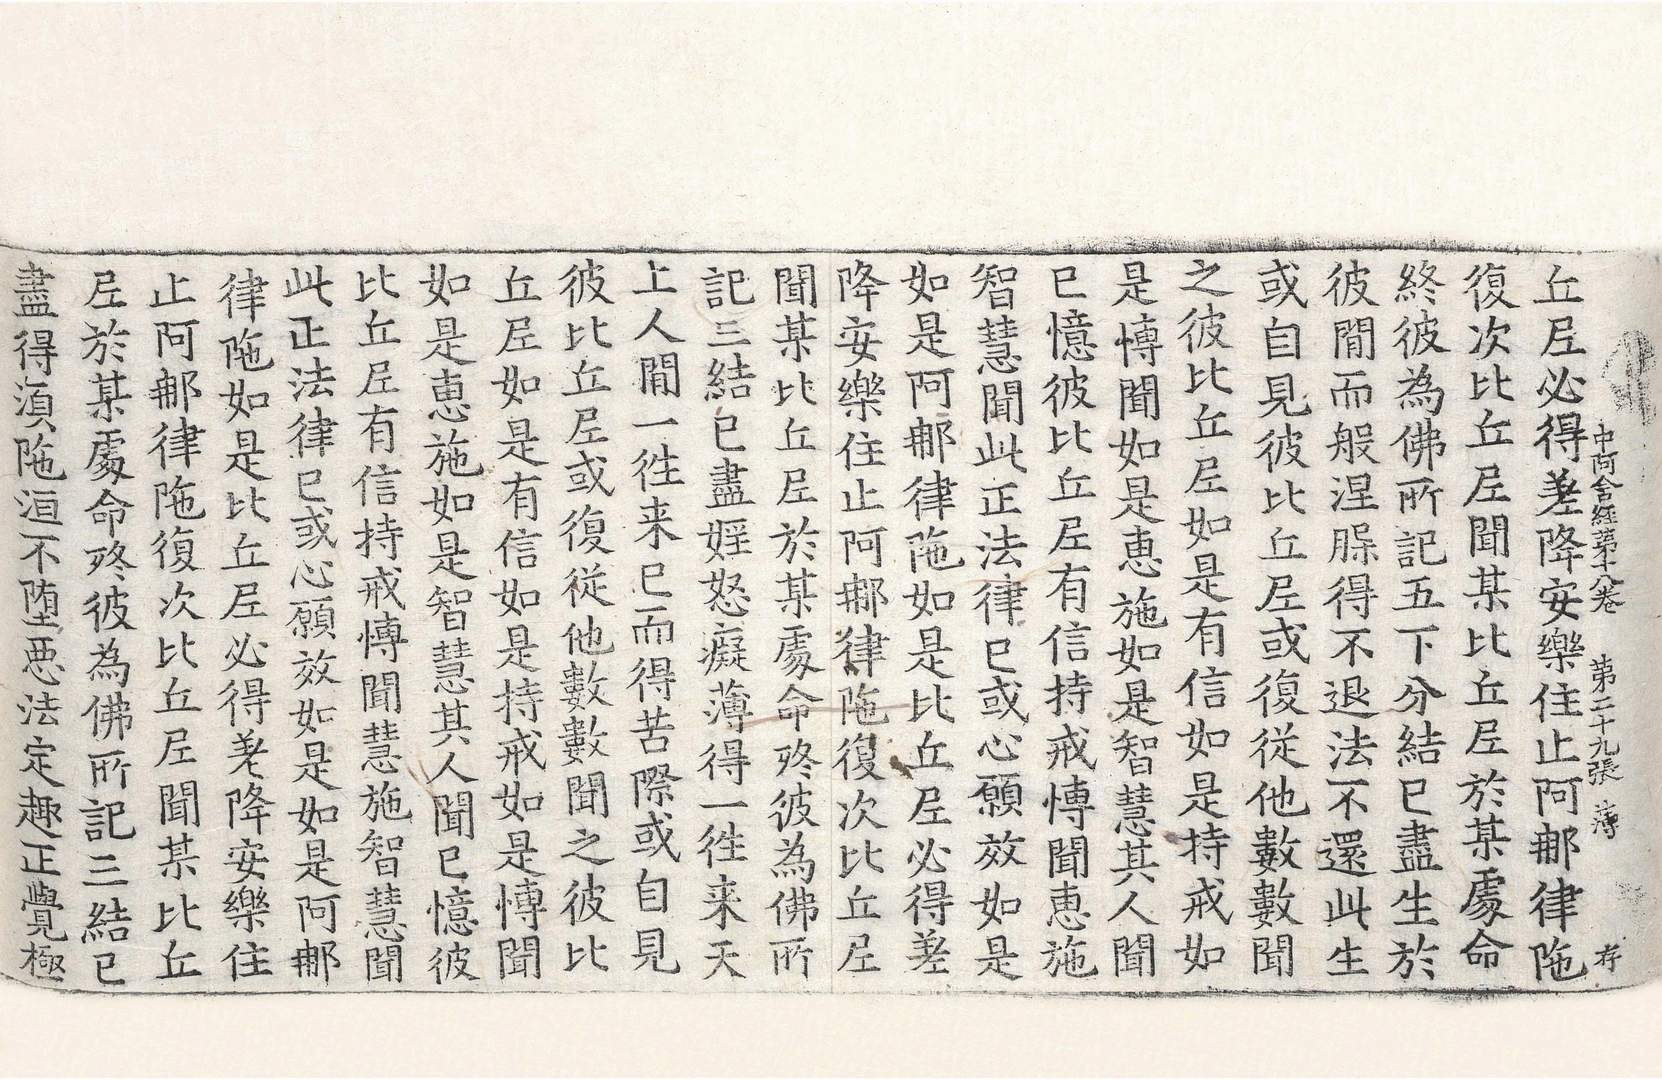 中阿含経第十八卷　第二十九張　薄　存
丘尼必得差降安樂住止阿那律陁
復次比丘尼聞某比丘尼於某處命
終彼為佛所記五下分結已盡生於
彼閒而般涅槃得不退法不還此生
或自見彼比丘尼或復從他數數聞
之彼比丘尼如是有信如是持戒如
是博聞如是惠施如是智慧其人聞
已憶彼比丘尼有信持戒博聞惠施
智慧聞此正法律已或心願效如是
如是阿那律陁如是比丘尼必得差
降安樂住止阿那律陁復次比丘尼
聞某比丘尼於某處命終彼為佛所
記三結已盡婬怒癡薄得一徃来天
上人閒一徃来已而得苦際或自見
彼比丘尼或復從他數數聞之彼比
丘尼如是有信如是持戒如是博聞
如是惠施如是智慧其人聞已憶彼
比丘尼有信持戒博聞慧施智慧聞
此正法律已或心願效如是如是阿那
律陁如是比丘尼必得差降安樂住
止阿那律陁復次比丘尼聞某比丘
尼於某處命終彼為佛所記三結已
盡得湏陁洹不墮惡法定趣正覺極